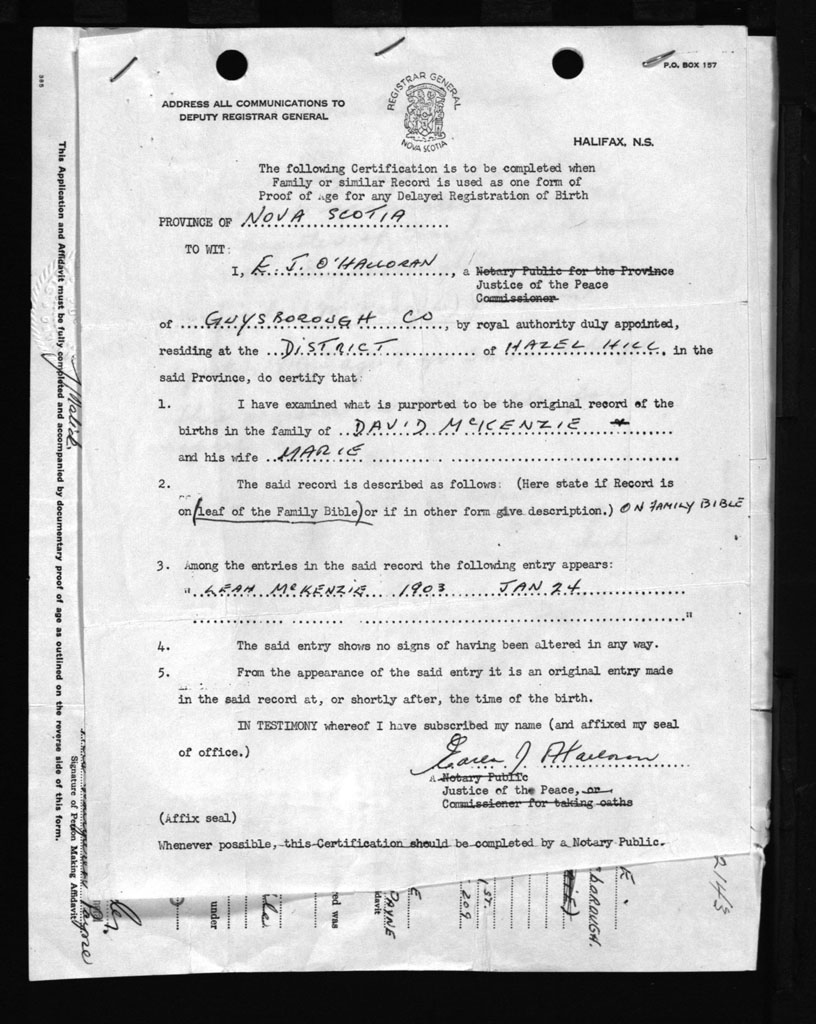 P.O. BOX 157
ADDRESS ALL COMMUNICATIONS TO
DEPUTY REGISTRAR GENERAL
REGISTRAR GENERAL
NOVA SCOTIA
HALIFAX, N.S.
The following Certification is to be completed when
Family or similar Record is used as one form of
Proof of Age for any Delayed Registration of Birth
PROVINCE OF NOVA SCOTIA
TO WIT:
I, E. J. O'HALLORAN, a Notary Public for the Province
Justice of the Peace
Commissioner
of GUYSBOROUGH CO, by royal authority duly appointed,
residing at the DISTRICT of HAZEL HILL, in the
said Province, do certify that:
1. I have examined what is purported to be the original record of the
births in the family of DAVID McKENZIE
and his wife MARIE
2. The said record is described as follows: (Here state if Record is
on (leaf of the Family Bible) or if in other form give description.) ON FAMILY BIBLE
3. Among the entries in the said record the following entry appears:
" LEAH McKENZIE 1903 JAN 24
"
4. The said entry shows no signs of having been altered in any way.
5. From the appearance of the said entry it is an original entry made
in the said record at, or shortly after, the time of the birth.
IN TESTIMONY whereof I have subscribed my name (and affixed my seal
of office.)
A Notary Public
Justice of the Peace, or
Commissioner for taking oaths
(Affix seal)
Whenever possible, this Certification should be completed by a Notary Public.
385
This Application and Affidavit must be fully completed and accompanied by documentary proof of age as outlined on the reverse side of this form.
Signature of Person Making Affidavit
Payne
under
ed was
PAYNE
davit
E
1ST.
209
BOROUGH.
E
2143